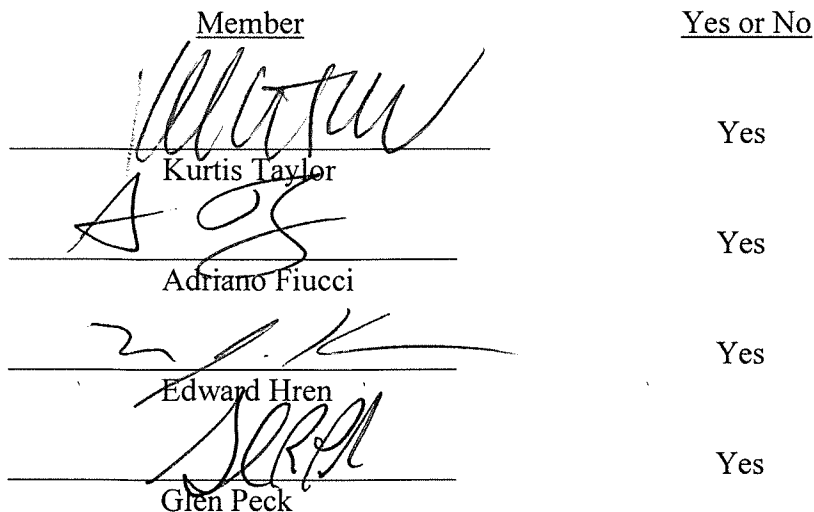 Member Yes or No
Yes
Kurtis Taylor
Yes
Adriano Fiucci
Yes
Edward Hren
Yes
Glen Peck